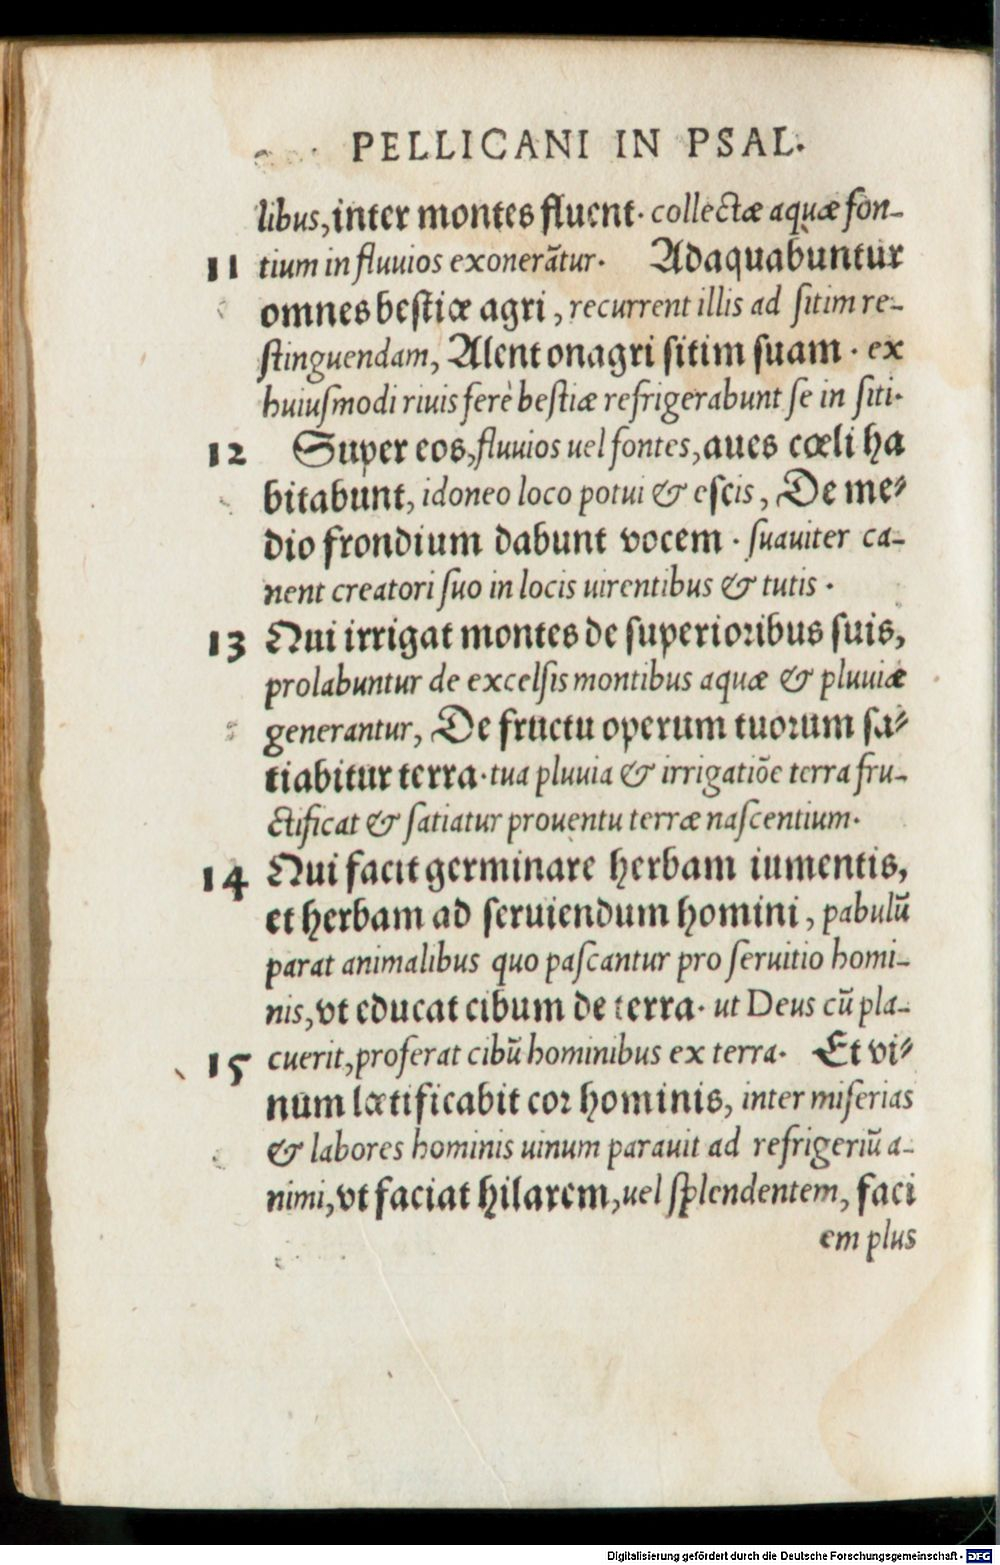 PELLICANI IN PSAL.
libus, inter montes fluent. collectæ aquæ fon-
11 tium in fluuios exonerãtur. Adaquabuntur
omnes bestiæ agri, recurrent illis ad ſitim re-
ſtinguendam, Alent onagri ſitim ſuam. ex
huiuſmodi riuis ferè beſtiæ refrigerabunt ſe in ſiti.
12 Super eos, fluuios uel fontes, aues cœli ha
bitabunt, idoneo loco potui & eſcis, De me⸗
dio frondium dabunt vocem. ſuauiter ca-
nent creatori ſuo in locis uirentibus & tutis.
13 Qui irrigat montes de ſuperioribus ſuis,
prolabuntur de excelſis montibus aquæ & pluuiæ
generantur, De fructu operum tuorum ſa⸗
tiabitur terra. tua pluuia & irrigatiõe terra fru-
ctificat & ſatiatur prouentu terræ naſcentium.
14 Qui facit germinare herbam iumentis,
et herbam ad ſeruiendum homini, pabulũ
parat animalibus quo paſcantur pro ſeruitio homi-
nis, vt educat cibum de terra. ut Deus cũ pla-
15 cuerit, proferat cibũ hominibus ex terra. Et vi⸗
num lætificabit cor hominis, inter miſerias
& labores hominis uinum parauit ad refrigeriũ a-
nimi, vt faciat hilarem, uel ſplendentem, faci
em plus
Digitalisierung gefördert durch die Deutsche Forschungsgemeinschaft - DFG